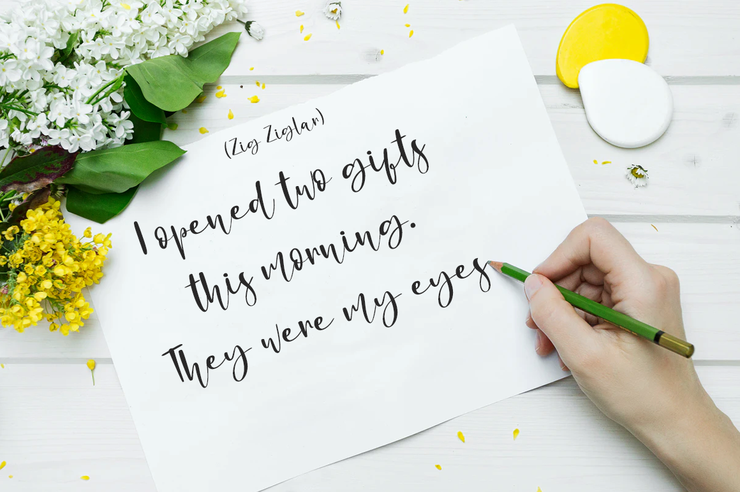 (Zig Ziglar)
I opened two gifts
this morning.
They were my eyes